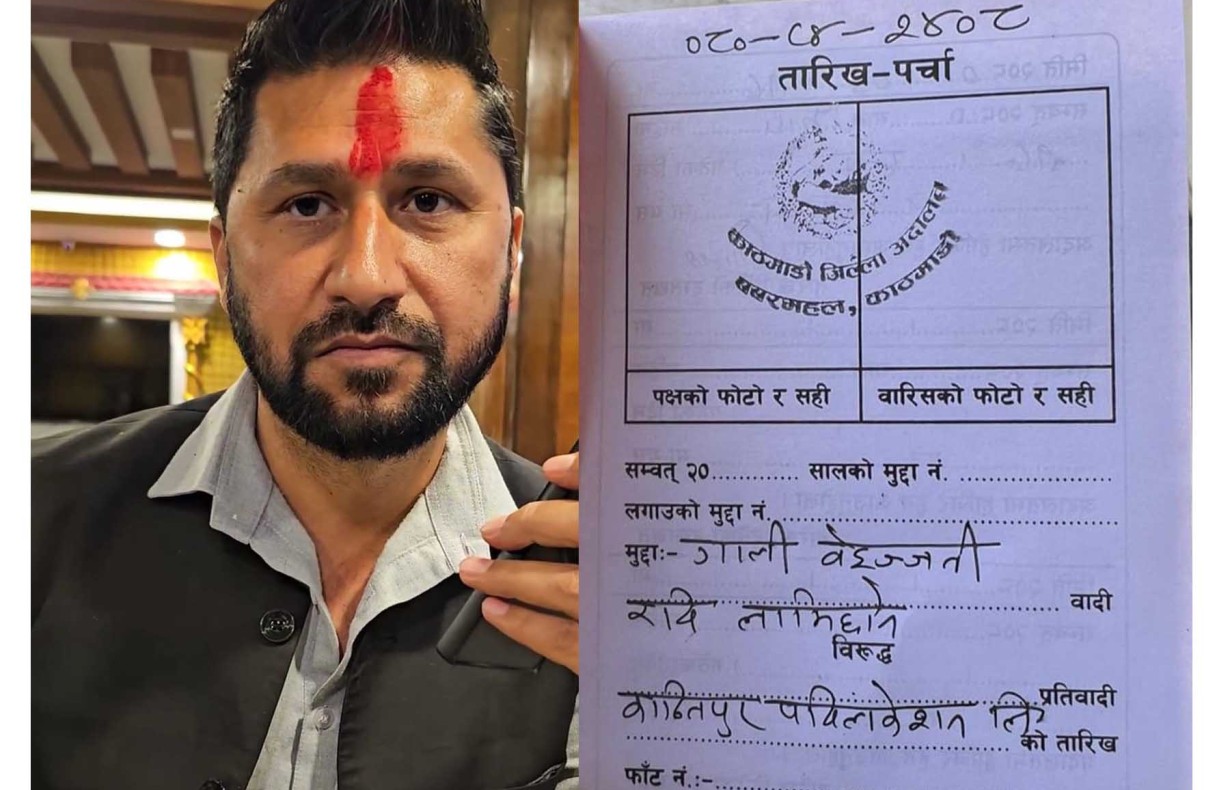 ०८०-८४-२४०८
तारिख-पर्चा
काठमाडौं जिल्ला अदालत
बबरमहल, काठमाडौं
पक्षको फोटो र सही
वारिसको फोटो र सही
सम्वत् २०............ सालको मुद्दा नं. .....................
लगाउको मुद्दा नं. ..............................................
मुद्दाः- गाली वेइज्जती
रवि लामिछाने .................... वादी
विरूद्ध
कान्तिपुर पब्लिकेशन लि प्रतिवादी
.......................................................... को तारिख
फाँट नं.:-....................